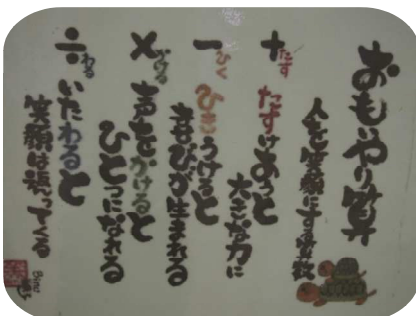 おもいやり算
人を笑顔にする算数
+たす たすけあうと
大きな力に
−ひく ひきうけると
喜びが生まれる
×かける 声をかけると
ひとつになれる
÷わる いたわると
笑顔は返ってくる